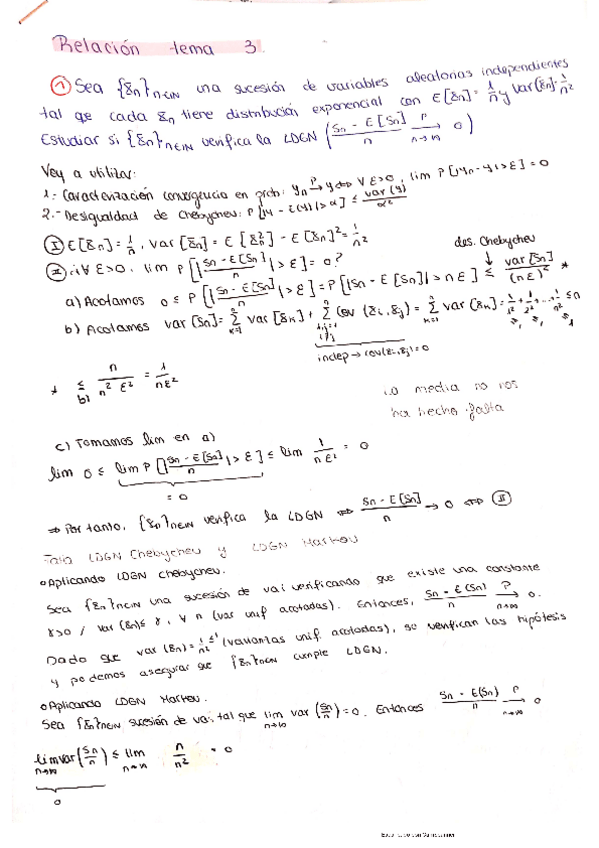 Relación tema 3.
① Sea {ξn}n∈ℕ una sucesión de variables aleatorias independientes
tal que cada ξn tiene distribución exponencial con E[ξn] = 1/n y Var(ξn) = 1/n²
Estudiar si {ξn}n∈ℕ verifica la LDGN ( (Sn - E[Sn])/n →P n→∞ 0 )
Voy a utilizar:
1.- Caracterización convergencia en prob: yn →P y ⇔ ∀ ε>0, lim P[|yn - y|>ε] = 0
2.- Desigualdad de Chebychev: P[|y - E(y)|>α] ≤ var(y)/α²
Ⓘ E[ξn] = 1/n, var[ξn] = E[ξn²] - E[ξn]² = 1/n²
Ⓘ Ⓘ ¿∀ ε>0, lim P[|(Sn - E[Sn])/n|>ε] = 0?
des. Chebychev
a) Acotamos 0 ≤ P[|(Sn - E[Sn])/n|>ε] = P[|Sn - E[Sn]|>nε] ≤ var[Sn]/(nε)² *
b) Acotamos var[Sn] = Σ var[ξk] + Σ cov(ξi, ξj) = Σ var[ξk] = 1/1² + 1/2² + ... + 1/n² ≤ n
indep → cov(ξi, ξj) = 0
* ≤ b) n/(n² ε²) = 1/(nε²)
La media no nos
ha hecho falta
c) Tomamos lim en a)
lim 0 ≤ lim P[|(Sn - E[Sn])/n|>ε] ≤ lim 1/(nε²) = 0
= 0
⇒ Por tanto, {ξn}n∈ℕ verifica la LDGN ⇔ (Sn - E[Sn])/n → 0 ⇔ Ⓘ Ⓘ
LDGN Chebychev y LDGN Markov
• Aplicando LDGN Chebychev.
Sea {ξn}n∈ℕ una sucesión de vai verificando que existe una constante
γ>0 / var(ξn) ≤ γ, ∀ n (var unif acotadas). Entonces, (Sn - E(Sn))/n →P n→∞ 0.
Dado que var(ξn) = 1/n² ≤ 1 (varianzas unif. acotadas), se verifican las hipótesis
y podemos asegurar que {ξn}n∈ℕ cumple LDGN.
• Aplicando LDGN Markov.
Sea {ξn}n∈ℕ sucesión de vai, tal que lim n→∞ var(Sn/n) = 0. Entonces (Sn - E(Sn))/n →P n→∞ 0
lim n→∞ var(Sn/n) ≤ lim n→∞ n/n² = 0
0